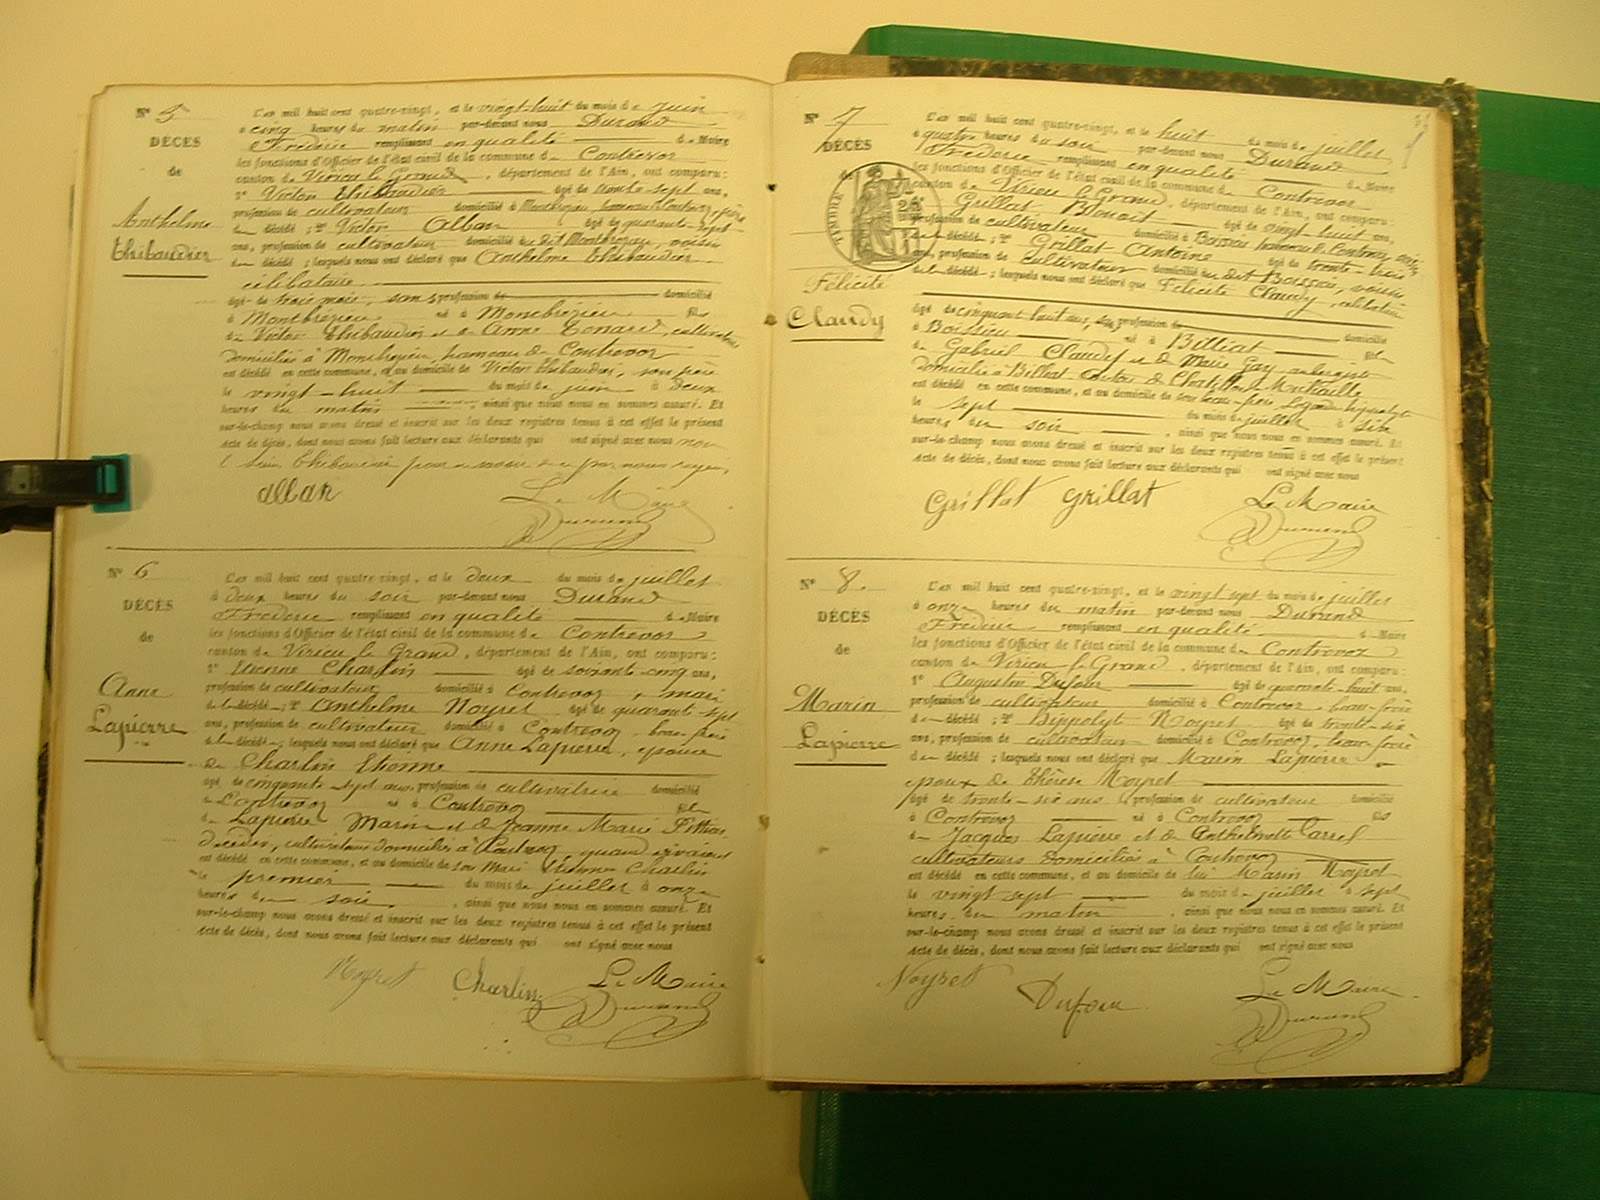 N° 5
DÉCÈS
de
Anthelme
Thibaudier
L'an mil huit cent quatre-vingt, et le vingt-huit du mois de juin
à cinq heures du matin par-devant nous Durand
Frédéric remplissant en qualité de Maire
les fonctions d'Officier de l'état civil de la commune de Contrevoz
canton de Virieu le Grand, département de l'Ain, ont comparu:
1° Victor Thibaudier âgé de trente-sept ans,
profession de cultivateur domicilié à Montbrezieu, hameau de Contrevoz, père
du décédé; 2° Victor Alban âgé de quarante-sept
ans, profession de cultivateur domicilié au dit Montbrezieu, voisin
du décédé; lesquels nous ont déclaré que Anthelme Thibaudier
célibataire
âgé de trois mois, sans profession de domicilié
à Montbrezieu né à Montbrezieu fils
de Victor Thibaudier et de Anne Tenard, cultivateurs
domiciliés à Montbrezieu, hameau de Contrevoz
est décédé en cette commune, et au domicile de Victor Thibaudier, son père
le vingt-huit du mois de juin à deux
heures du matin, ainsi que nous nous en sommes assuré. Et
sur-le-champ nous avons dressé et inscrit sur les deux registres tenus à cet effet le présent
acte de décès, dont nous avons fait lecture aux déclarants qui ont signé avec nous non
le sieur Thibaudier pour ne savoir de ce par nous requis,
Alban Le Maire
Durand
N° 6
DÉCÈS
de
Anne
Lapierre
L'an mil huit cent quatre-vingt, et le deux du mois de juillet
à deux heures du soir par-devant nous Durand
Frédéric remplissant en qualité de Maire
les fonctions d'Officier de l'état civil de la commune de Contrevoz
canton de Virieu le Grand, département de l'Ain, ont comparu:
1° Etienne Charlin âgé de soixante-cinq ans,
profession de cultivateur domicilié à Contrevoz, mari
de la décédée; 2° Anthelme Noyret âgé de quarante-sept
ans, profession de cultivateur domicilié à Contrevoz, beau-frère
de la décédée; lesquels nous ont déclaré que Anne Lapierre, épouse
de Charlin Etienne
âgé de cinquante-sept ans, profession de cultivatrice domicilié
à Contrevoz né à Contrevoz fille
de Lapierre Marin et de Jeanne Marie
décédés, cultivateurs domiciliés à Contrevoz, quand vivaient
est décédé en cette commune, et au domicile de son mari Etienne Charlin
le premier du mois de juillet à onze
heures du soir, ainsi que nous nous en sommes assuré. Et
sur-le-champ nous avons dressé et inscrit sur les deux registres tenus à cet effet le présent
acte de décès, dont nous avons fait lecture aux déclarants qui ont signé avec nous
Noyret Charlin Le Maire
Durand
N° 7
DÉCÈS
de
TIMBRE
Félicité
Claudy
L'an mil huit cent quatre-vingt, et le huit du mois de juillet
à quatre heures du soir par-devant nous Durand
Frédéric remplissant en qualité de Maire
les fonctions d'Officier de l'état civil de la commune de Contrevoz
canton de Virieu le Grand, département de l'Ain, ont comparu:
Grillat Benoit âgé de vingt huit ans,
profession de cultivateur domicilié à Boissieu, hameau de Contrevoz, voisin
de la décédé; 2° Grillat Antoine âgé de trente-trois
ans, profession de cultivateur domicilié au dit Boissieu, voisin
de la décédé; lesquels nous ont déclaré que Félicité Claudy, célibataire
âgé de cinquante huit ans, sans profession de domicilié
à Boissieu né à Billiat fille
de Gabriel Claudy et de Marie Gay
domiciliés à Billiat canton de Chatillon de Michaille
est décédé en cette commune, et au domicile de son beau-frère
le sept du mois de juillet à six
heures du soir, ainsi que nous nous en sommes assuré. Et
sur-le-champ nous avons dressé et inscrit sur les deux registres tenus à cet effet le présent
acte de décès, dont nous avons fait lecture aux déclarants qui ont signé avec nous
Grillat Grillat Le Maire
Durand
N° 8.
DÉCÈS
de
Marin
Lapierre
L'an mil huit cent quatre-vingt, et le vingt sept du mois de juillet
à onze heures du matin par-devant nous Durand
Frédéric remplissant en qualité de Maire
les fonctions d'Officier de l'état civil de la commune de Contrevoz
canton de Virieu le Grand, département de l'Ain, ont comparu:
1° Augustin Dufour âgé de quarante-huit ans,
profession de cultivateur domicilié à Contrevoz, beau-frère
du décédé; 2° Hippolyte Noyret âgé de trente-six
ans, profession de cultivateur domicilié à Contrevoz, beau-frère
du décédé; lesquels nous ont déclaré que Marin Lapierre
époux de Thérèse Noyret
âgé de trente-six ans, profession de cultivateur domicilié
à Contrevoz né à Contrevoz fils
de Jacques Lapierre et de Anthelmette Carrel
cultivateurs domiciliés à Contrevoz
est décédé en cette commune, et au domicile de lui Marin Noyret
le vingt-sept du mois de juillet à sept
heures du matin, ainsi que nous nous en sommes assuré. Et
sur-le-champ nous avons dressé et inscrit sur les deux registres tenus à cet effet le présent
acte de décès, dont nous avons fait lecture aux déclarants qui ont signé avec nous
Noyret Dufour Le Maire
Durand